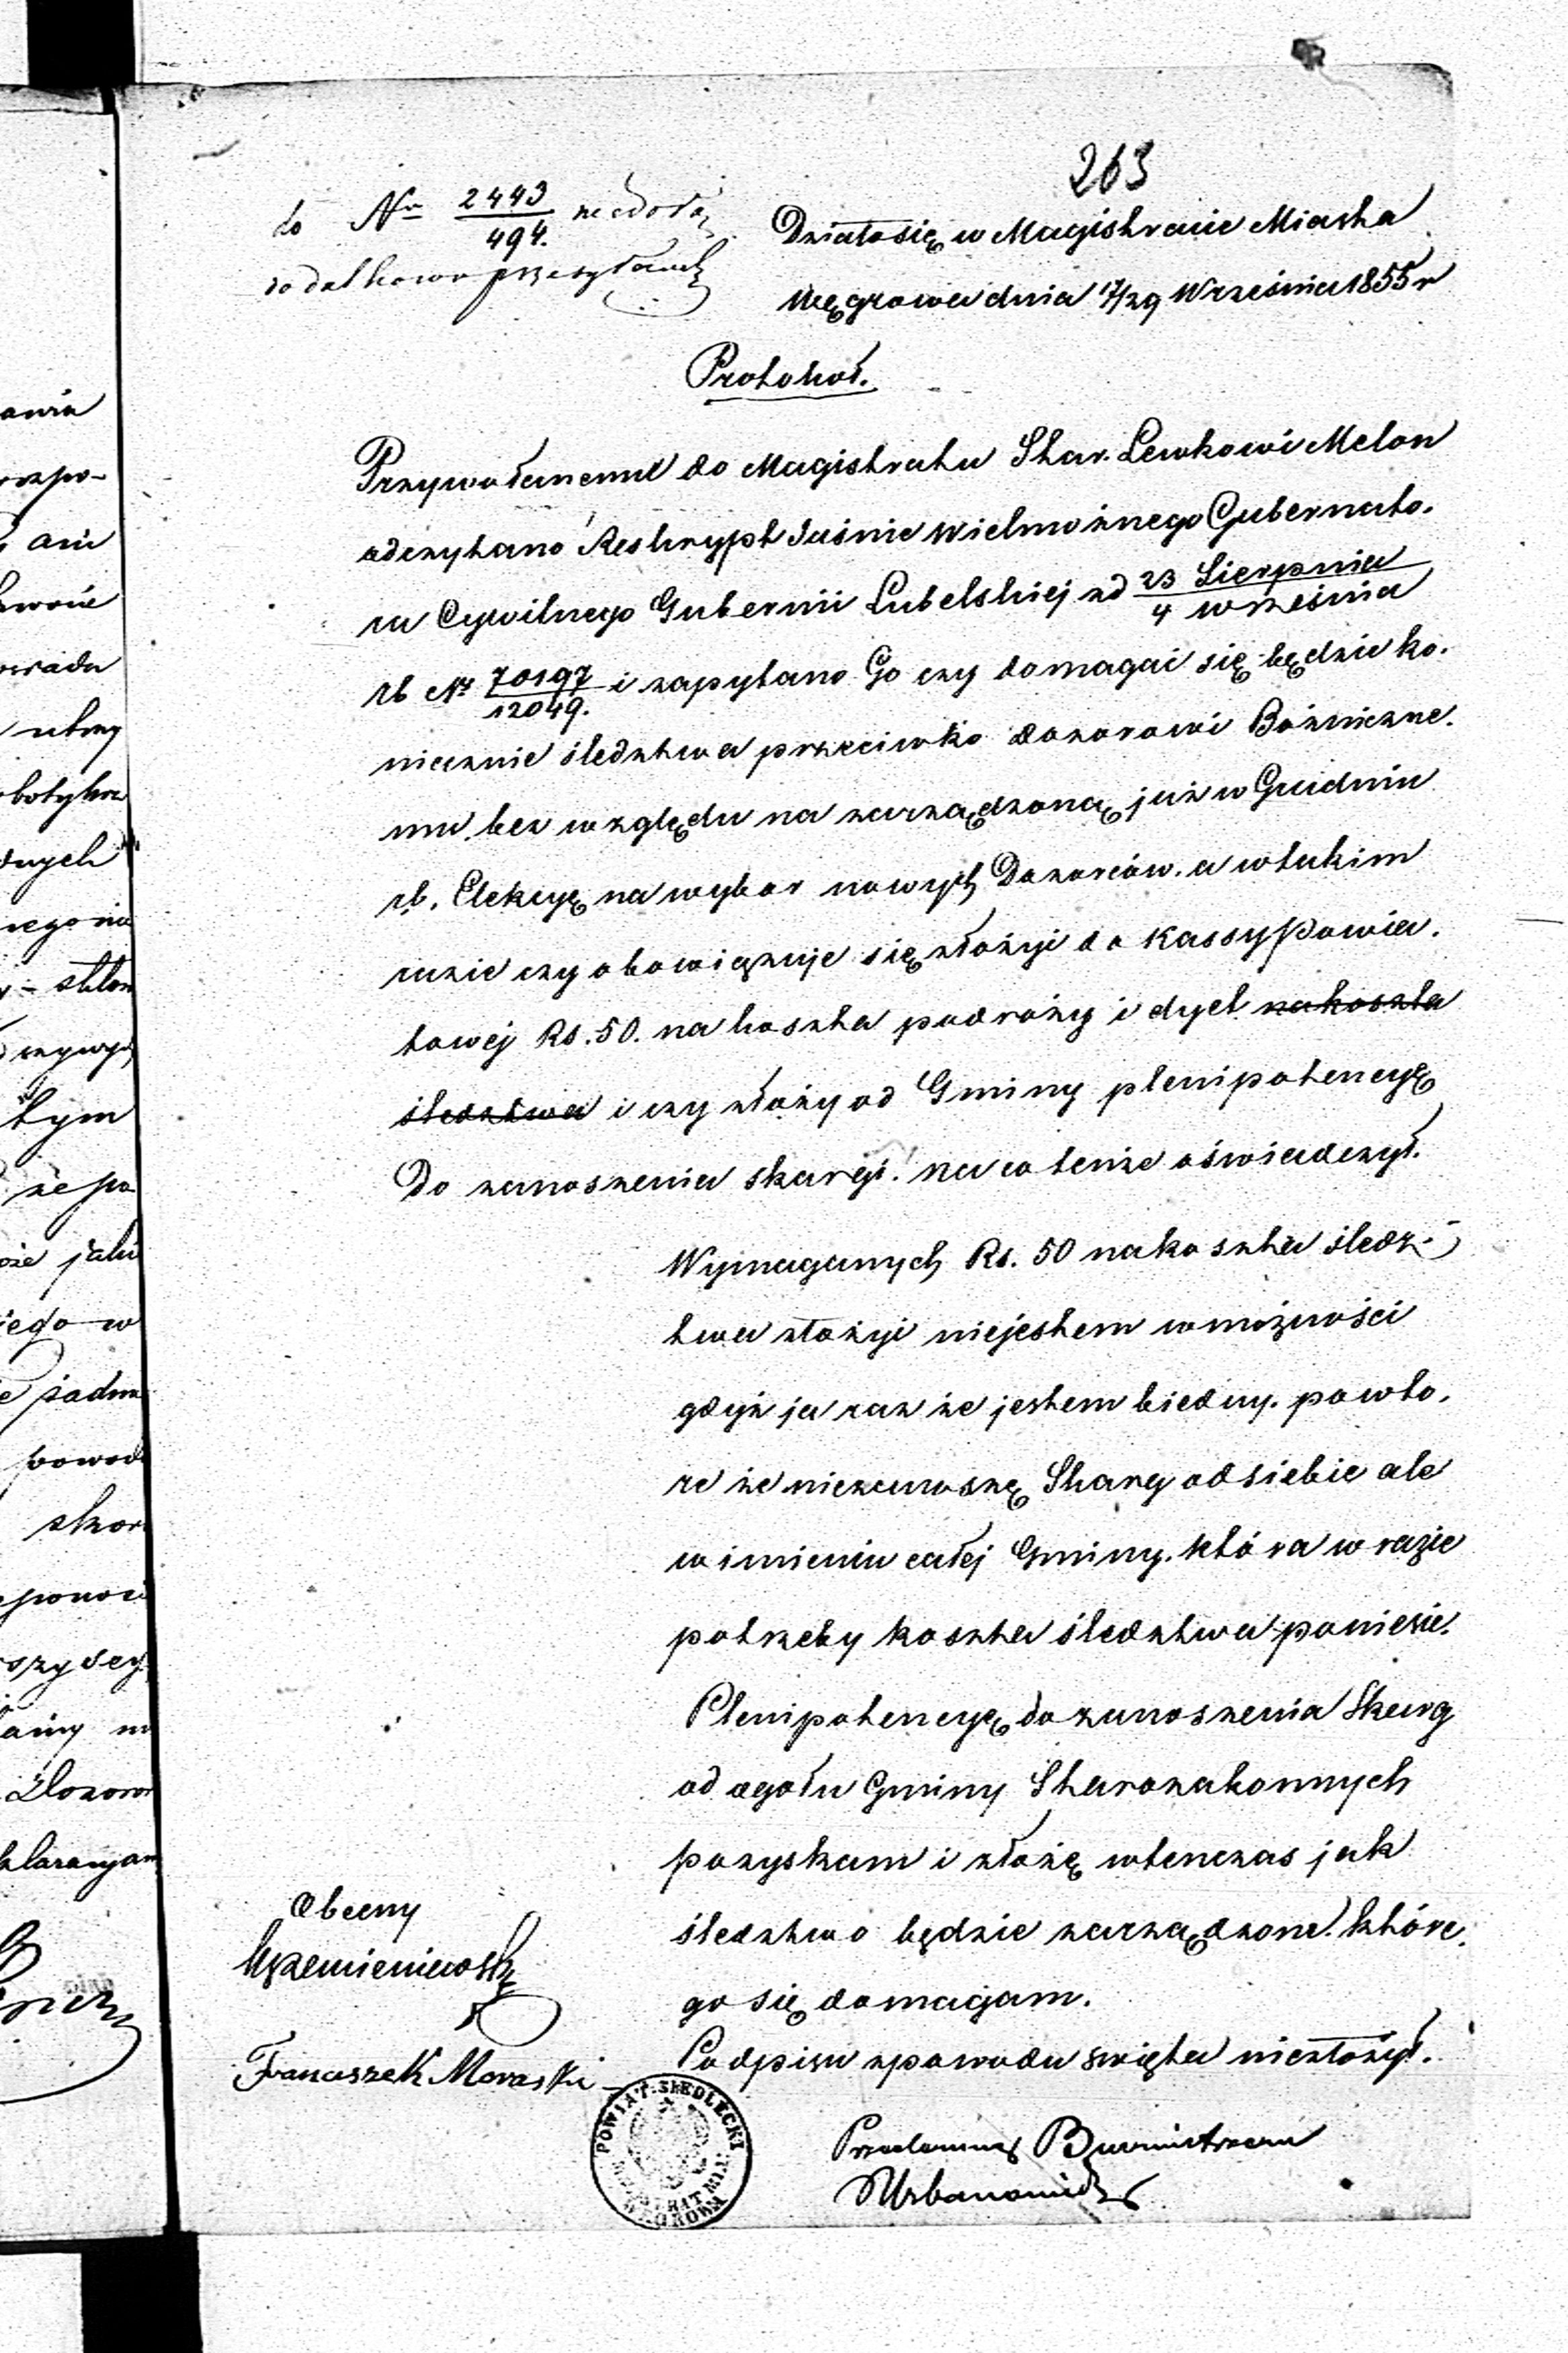 263
do Nr 2443/494.
dodatkowo przesyłam
Działo się w Magistracie Miasta
Węgrowa dnia 17/29 Września 1855 r
Protokół.
Przywołanemu do Magistratu Star. Lewkowi Melon
odczytano Reskrypt Jaśnie Wielmożnego Gubernato.
ra Cywilnego Gubernii Lubelskiej z d 23 Sierpnia / 4 września
rb Nr 70197/12049. i zapytano Go czy domagać się będzie ko.
niecznie śledztwa przeciwko dozorowi Bóżniczne.
mu bez względu na zarządzoną już w Grudniu
rb. Elekcyę na wybor nowych Dozorców. a w takim
razie czy obowięzuje się złożyć do Kassy Powia.
towej Rs. 50. na koszta podroży i dyet na koszta
śledztwa i czy złoży od Gminy plenipotencyę
Do zanoszenia skargi. na co tenże oświadczył.
Wymaganych Rs. 50 na koszta śledz-
twa złożyć niejestem w możności
gdyż ja raz że jestem biedny. powto.
re że niezanoszę Skarg od siebie ale
w imieniu całej Gminy. która w razie
potrzeby koszta śledztwa poniesie.
Plenipotencyę do zanoszenia Skarg
od ogołu Gminy Starozakonnych
pozyskam i złożę wtenczas jak
śledztwo będzie zarządzone. które.
go się domagam.
Podpisu z powodu święta niezłożył.
Obecny
Franciszek Moraski
Burmistrza
Urbanowicz
POWIAT SIEDLECKI
MAGISTRAT MIA.
WĘGROWA